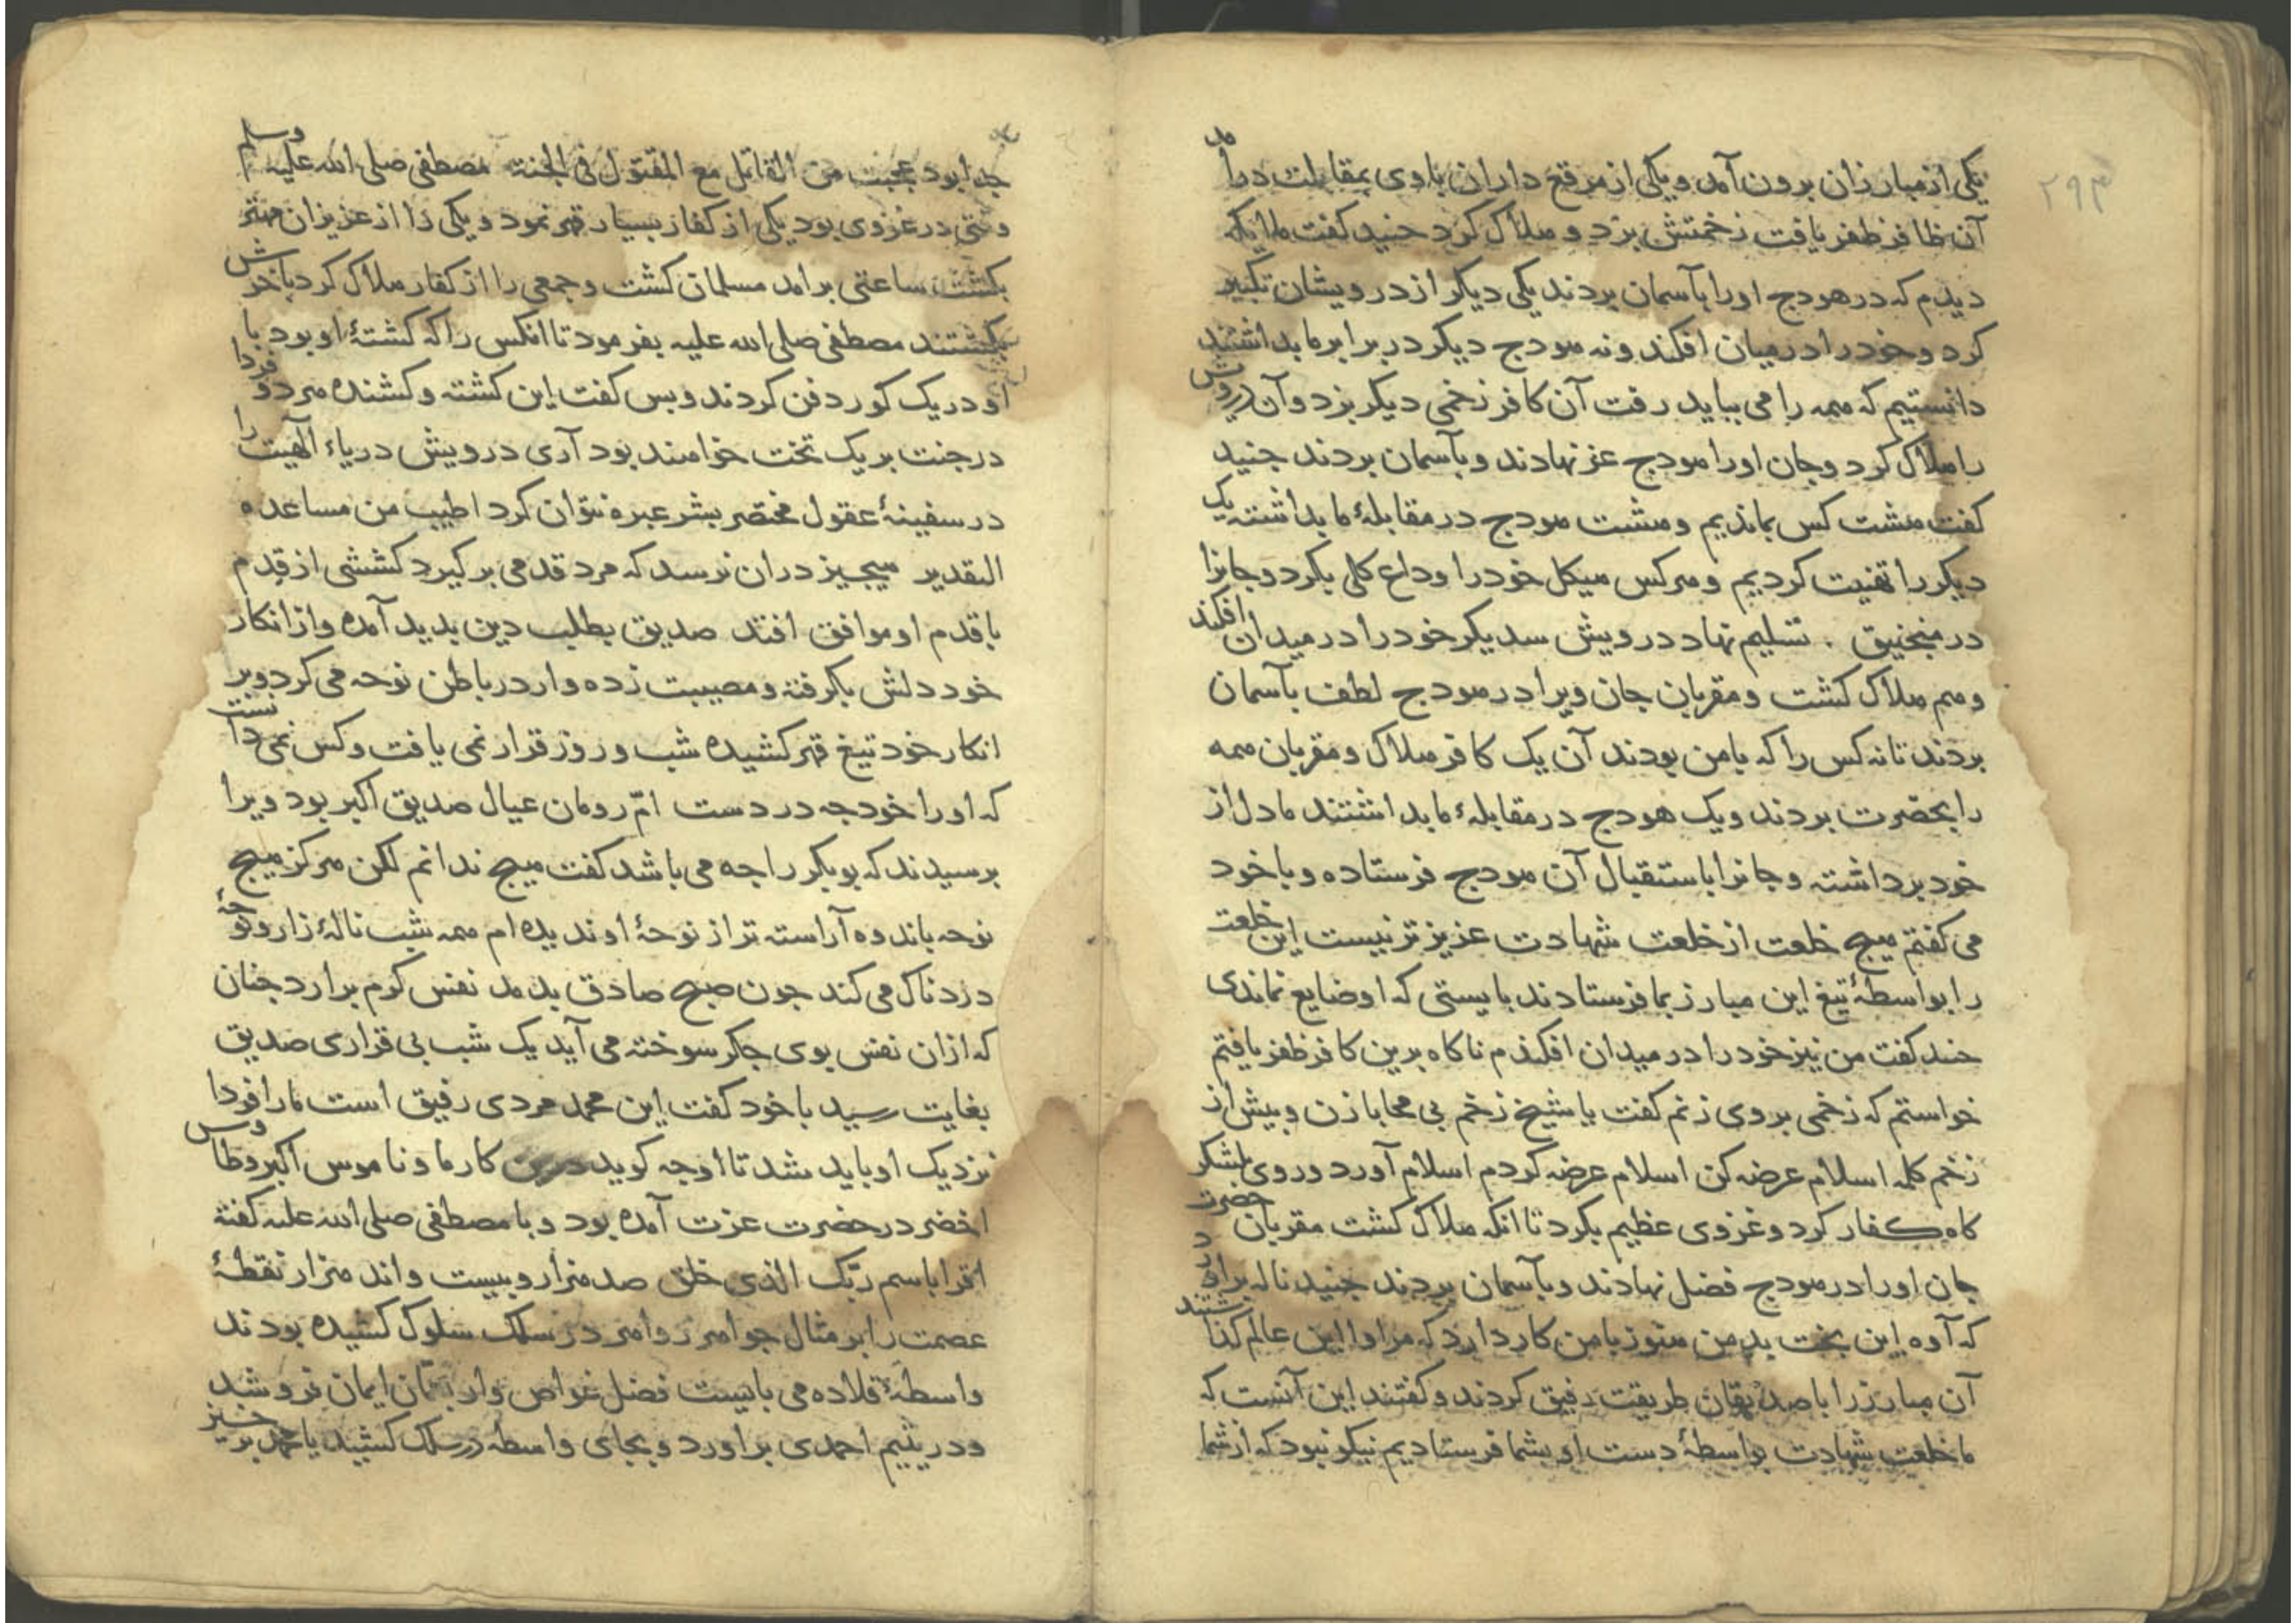 ۲۹۳
یکی از مبارزان برون آمد و یکی از مرقع داران باوی بمقابلت درآمد
آن ظافر ظفر یافت زخمتش بزد و هلاک کرد جنید کفت ملایکه
دیدم که در هودج اورا بآسمان بردند یکی دیکر از درویشان تکبیر
کرد و خود را در میان افکند و نه هودج دیکر در برابر ما بداشتند
دانستیم که همه را می بباید رفت آن کافر زخمی دیکر بزد و آن درویش
را هلاک کرد و جان اورا هودج عز نهادند و بآسمان بردند جنید
کفت هشت کس بماندیم و هشت هودج در مقابلهٔ ما بداشته یک
دیکر را تهنیت کردیم و هرکس هیکل خود را وداع کلی بکرد و جانرا
در منجنیق تسلیم نهاد درویش سدیکر خود را در میدان افکند
و هم هلاک کشت و مقربان جان ویرا در هودج لطف بآسمان
بردند تا نه کس را که با من بودند آن یک کافر هلاک و مقربان همه
را بحضرت بردند و یک هودج در مقابلهٔ ما بداشتند ما دل از
خود برداشته و جانرا باستقبال آن هودج فرستاده و با خود
می کفتم هیج خلعت از خلعت شهادت عزیزتر نیست این خلعت
را بواسطهٔ تیغ این مبارز بما فرستادند بایستی که او ضایع نماندی
جنید کفت من نیز خود را در میدان افکندم ناکاه برین کافر ظفر یافتم
خواستم که زخمی بروی زنم کفت یا شیخ زخم بی محابا زن و بیش از
زخم کلمه اسلام عرضه کن اسلام عرضه کردم اسلام آورد و روی بلشکر
کاه کفار کرد و غزوی عظیم بکرد تا انکه هلاک کشت مقربان حضرت
جان اورا در هودج فضل نهادند و بآسمان بردند جنید ناله براورد
که آوه این بخت بد من هنوز با من کار دارد که مرا وا این عالم کذاشتند
آن مبارز را با صدیقان طریقت رفیق کردند و کفتند این آنست که
ما خلعت شهادت بواسطهٔ دست او بشما فرستادیم نیکو نبود که از شما
جدا بود عجبت من القاتل مع المقتول فی الجنة مصطفی صلی الله علیه وسلم
وقتی در غزوی بود یکی از کفار بسیار قهر نمود و یکی را از عزیزان مهتر
بکشت ساعتی برامد مسلمان کشت و جمعی را از کفار هلاک کرد باخرش
بکشتند مصطفی صلی الله علیه بفرمود تا انکس را که کشتهٔ او بود با
او در یک کور دفن کردند و بس کفت این کشته و کشنده هر دو فردا
در جنت بر یک تخت خواهند بود آری درویش دریاء الهیت را
در سفینهٔ عقول مختصر بشر عبره نتوان کرد اطیب من مساعده
التقدیر هیجیز دران نرسد که مرد قدمی برکیرد کششی از قدم
با قدم او موافق افتد صدیق بطلب دین بدید آمده و از انکار
خود دلش بکرفته و مصیبت زده وار در باطن نوحه می کرد و بر
انکار خود تیغ قهر کشیده شب و روز قرار نمی یافت و کس نمی دانست
که اورا خود جه دردست امّ رومان عیال صدیق اکبر بود ویرا
برسیدند که بوبکر را جه می باشد کفت هیج ندانم لکن هرکز هیج
نوحه باندوه آراسته تر از نوحهٔ او ندیده ام همه شب نالهٔ زار و نوحهٔ
دردناک می کند جون صبح صادق بدمد نفس کرم برارد جنان
که ازان نفس بوی جکر سوخته می آید یک شب بی قراری صدیق
بغایت رسید با خود کفت این محمد مردی رفیق است مارا فردا
نزدیک او باید شد تا او جه کوید درین کار ما و ناموس اکبر و طاوس
اخضر در حضرت عزت آمده بود و با مصطفی صلی الله علیه کفته
اقرا باسم ربّک الذی خلق صد هزار و بیست و اند هزار نقطهٔ
عصمت را بر مثال جواهر زواهر در سلک سلوک کشیده بودند
واسطهٔ قلاده می بایست فضل غواص وار بقمان ایمان فرو شد
و در یتیم احمدی براورد و بجای واسطه در سلک کشید یا محمد برخیز